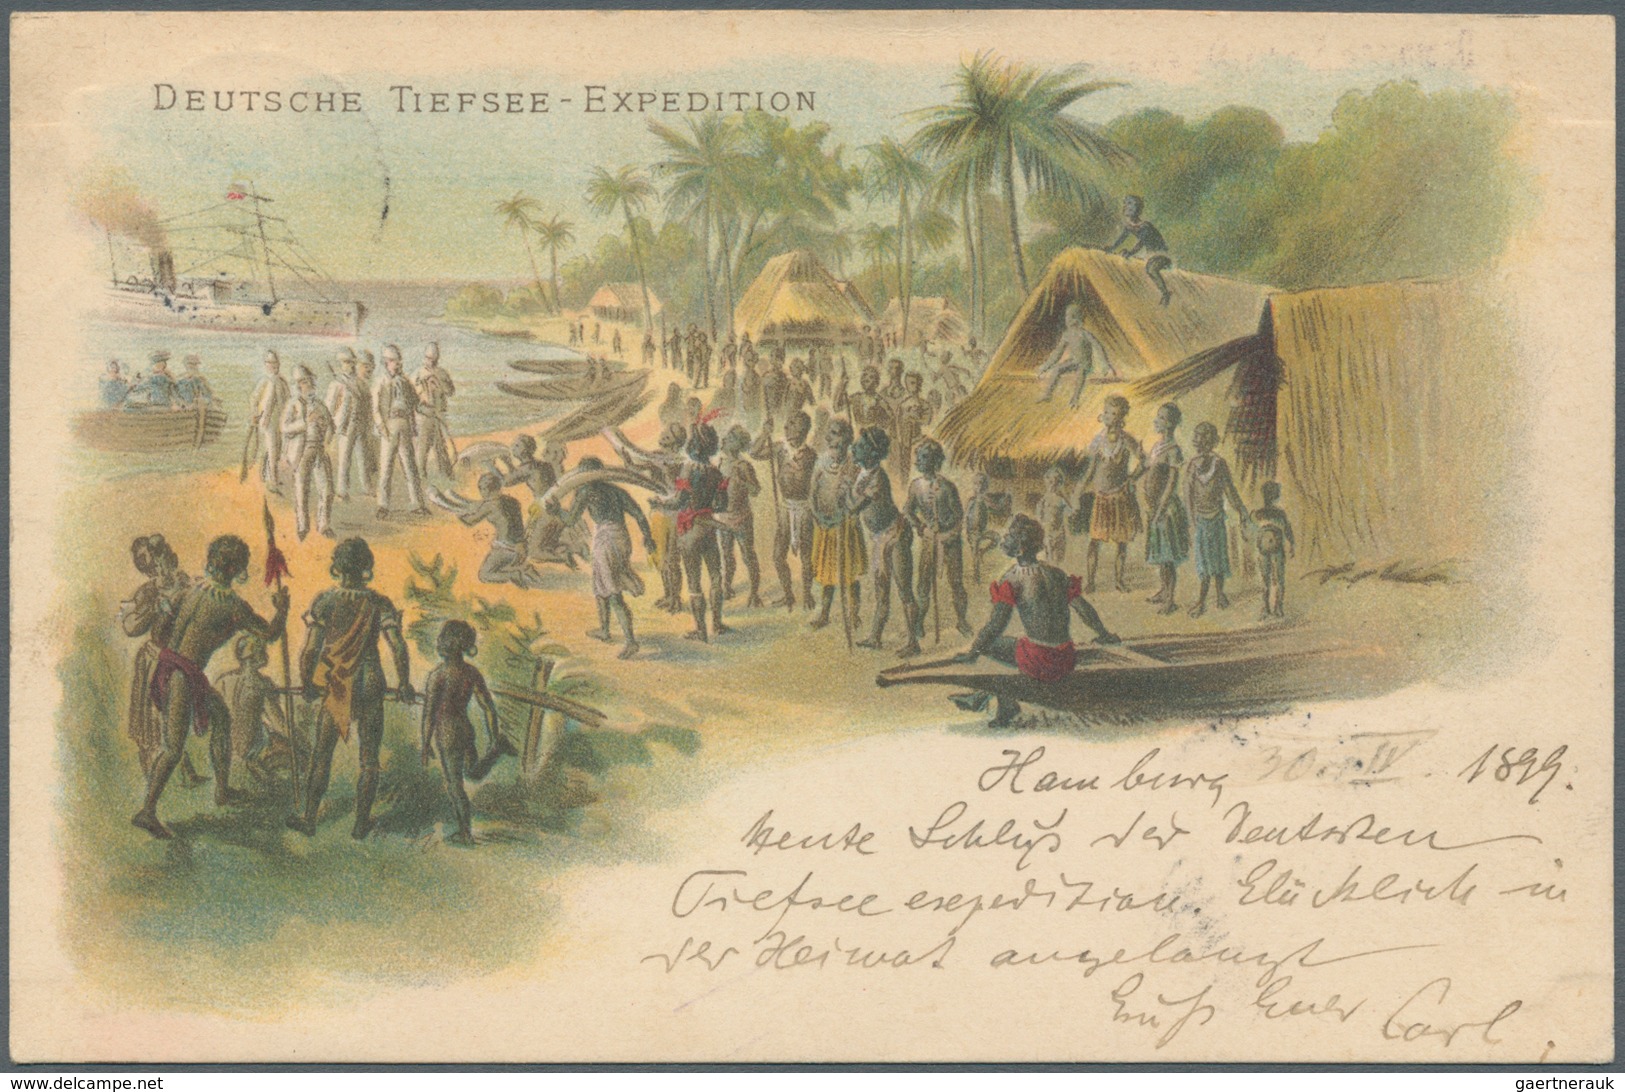 DEUTSCHE TIEFSEE-EXPEDITION
Hamburg 30. IV. 1899.
Heute Schluß der Deutschen
Tiefseeexpedition. Glücklich in
der Heimat angelangt
Gruß Euer Carl.
© www.delcampe.net
gaertnerauk